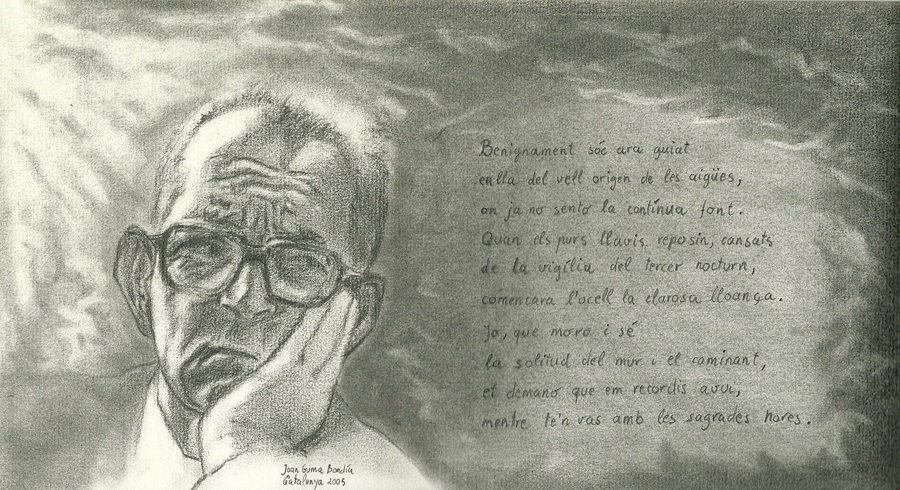 Benignament sóc ara guiat
enllà del vell origen de les aigües,
on ja no sento la contínua font.
Quan els purs llavis reposin, cansats
de la vigília del tercer nocturn,
començarà l'ocell la clarosa lloança.
Jo, que moro i sé
la solitud del mur i el caminant,
et demano que em recordis avui,
mentre te'n vas amb les sagrades hores.
Joan Guma Bondia
Catalunya 2005